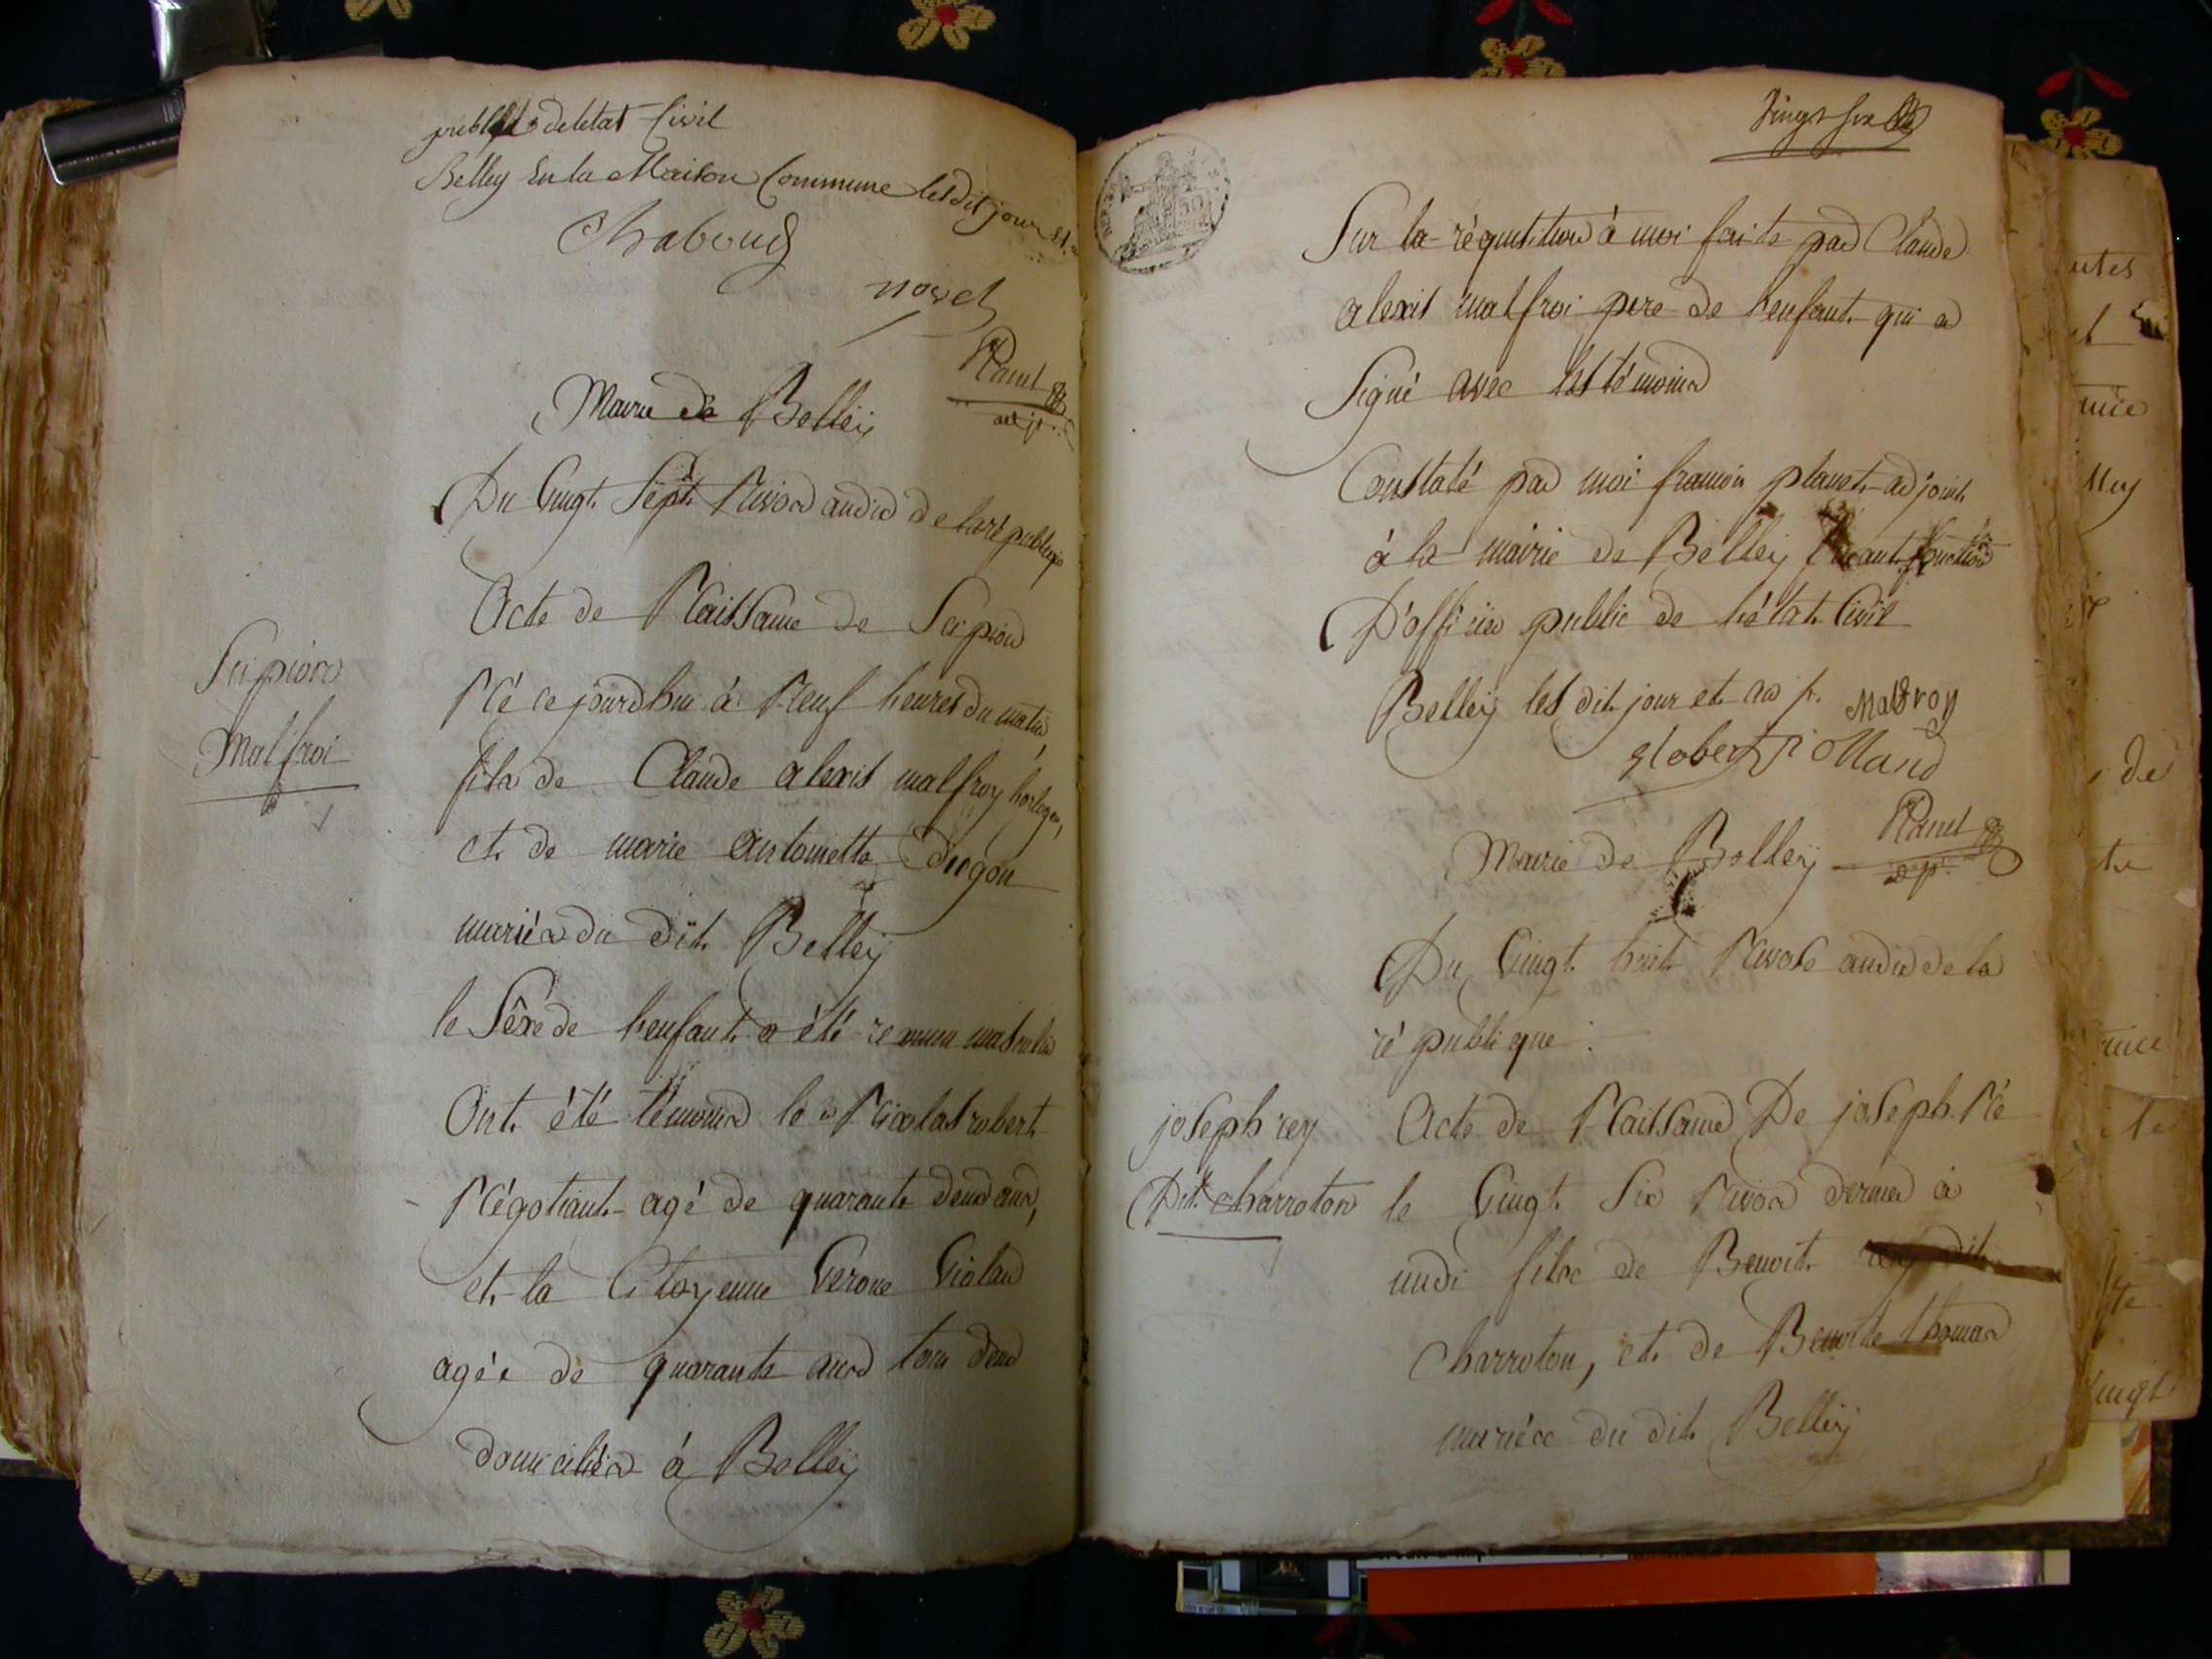 public de létat Civil
Belley En la Maison Commune lesdit jour et
Chaboud
novel
Planet
adjt.
Mairie de Belleÿ
Du Vingt Sept Nivos andix de la république
Acte de Naissance de Scipion
Scipion
Malfroi
Né ce jourdhui à Neuf heures du matin,
fils de Claude alexis malfroy horloger,
et de marie antoinette
mariés du dit Belleÿ
le Séxe de l'enfant a été reconnu masculin
Ont été témoins le cn Nicolas robert
Négotiant agé de quarante deux ans,
et la Citoyenne
agée de quarante ans tous deux
domiciliés à Belleÿ
Vingt six
Sur la réquisition à moi faite par Claude
alexis malfroi pere de l'enfant qui a
Signé avec les témoins
Constaté par moi francois planet adjoint
à la mairie de Belleÿ faisant fonction
D'officier public de l'état Civil
Belleÿ les dit jour et an
Malfroy
Robert
Planet
Mairie de Belleÿ
Du Vingt huit Nivose andix de la
république
joseph rey
Dit charroton
Acte de Naissance De joseph Né
le Vingt Six Nivos dernier à
midi fils de Benoit rey dit
Charroton, et de Benoite thomas
mariés du dit Belleÿ